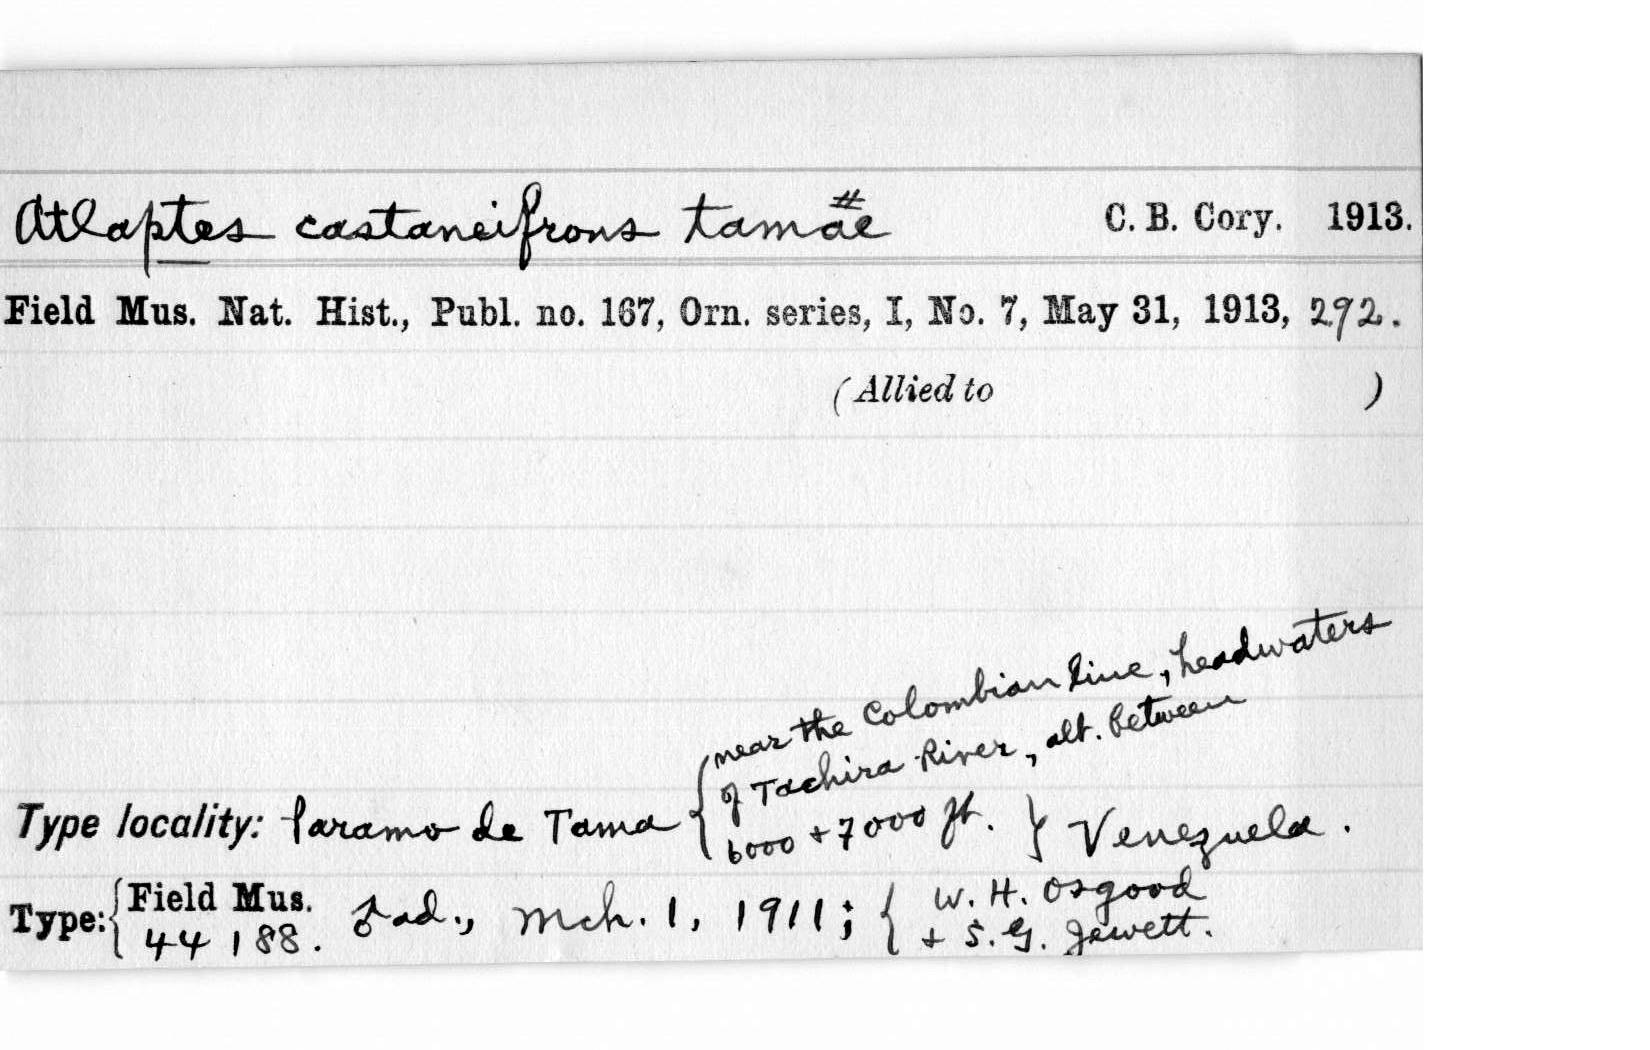 Atlaptes castaneifrons tamae # C. B. Cory. 1913.
Field Mus. Nat. Hist., Publ. no. 167, Orn. series, I, No. 7, May 31, 1913, 292.
(Allied to )
near the Colombian line, headwaters
of Tachira River, alt. between
6000 + 7000 ft.
Type locality: Paramo de Tama { } Venezuela.
Type: { Field Mus. 44188. ♂ ad., Mch. 1, 1911; { W. H. Osgood
+ S. G. Jewett.